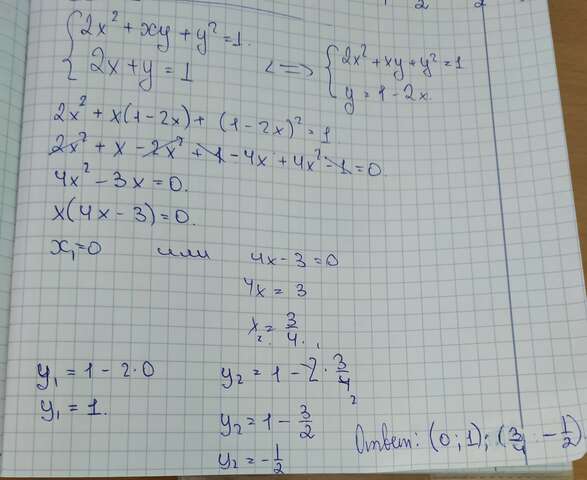 {2x² + xy + y² = 1. <=> {2x² + xy + y² = 1
{2x + y = 1 {y = 1 - 2x.
2x² + x(1 - 2x) + (1 - 2x)² = 1
2x² + x - 2x² + 1 - 4x + 4x² - 1 = 0
4x² - 3x = 0.
x(4x - 3) = 0.
x₁ = 0 или 4x - 3 = 0
4x = 3
x₂ = 3/4.
y₁ = 1 - 2·0 y₂ = 1 - 2·3/4 2
y₁ = 1. y₂ = 1 - 3/2
y₂ = -1/2
Ответ: (0; 1); (3/4; -1/2)